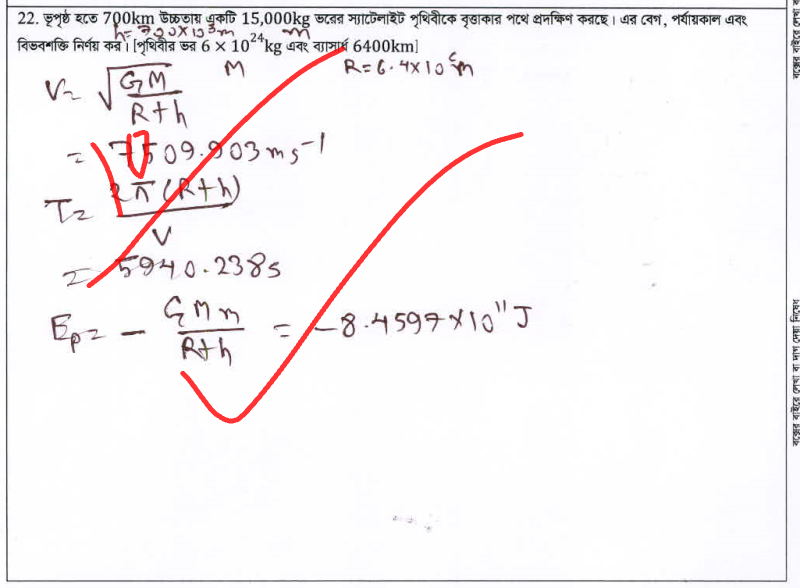 22. ভূপৃষ্ঠ হতে 700km উচ্চতায় একটি 15,000kg ভরের স্যাটেলাইট পৃথিবীকে বৃত্তাকার পথে প্রদক্ষিণ করছে। এর বেগ, পর্যায়কাল এবং
h = 700×10³m m
বিভবশক্তি নির্ণয় কর। [পৃথিবীর ভর 6 × 10²⁴kg এবং ব্যাসার্ধ 6400km]
M R = 6.4×10⁶m
V = √(GM/(R+h))
= 7509.903 ms⁻¹
T = 2π(R+h)/V
= 5940.238s
Ep = − GMm/(R+h) = −8.4597×10¹¹ J
বক্সের বাইরে লেখা বা দাগ দেয়া নিষেধ